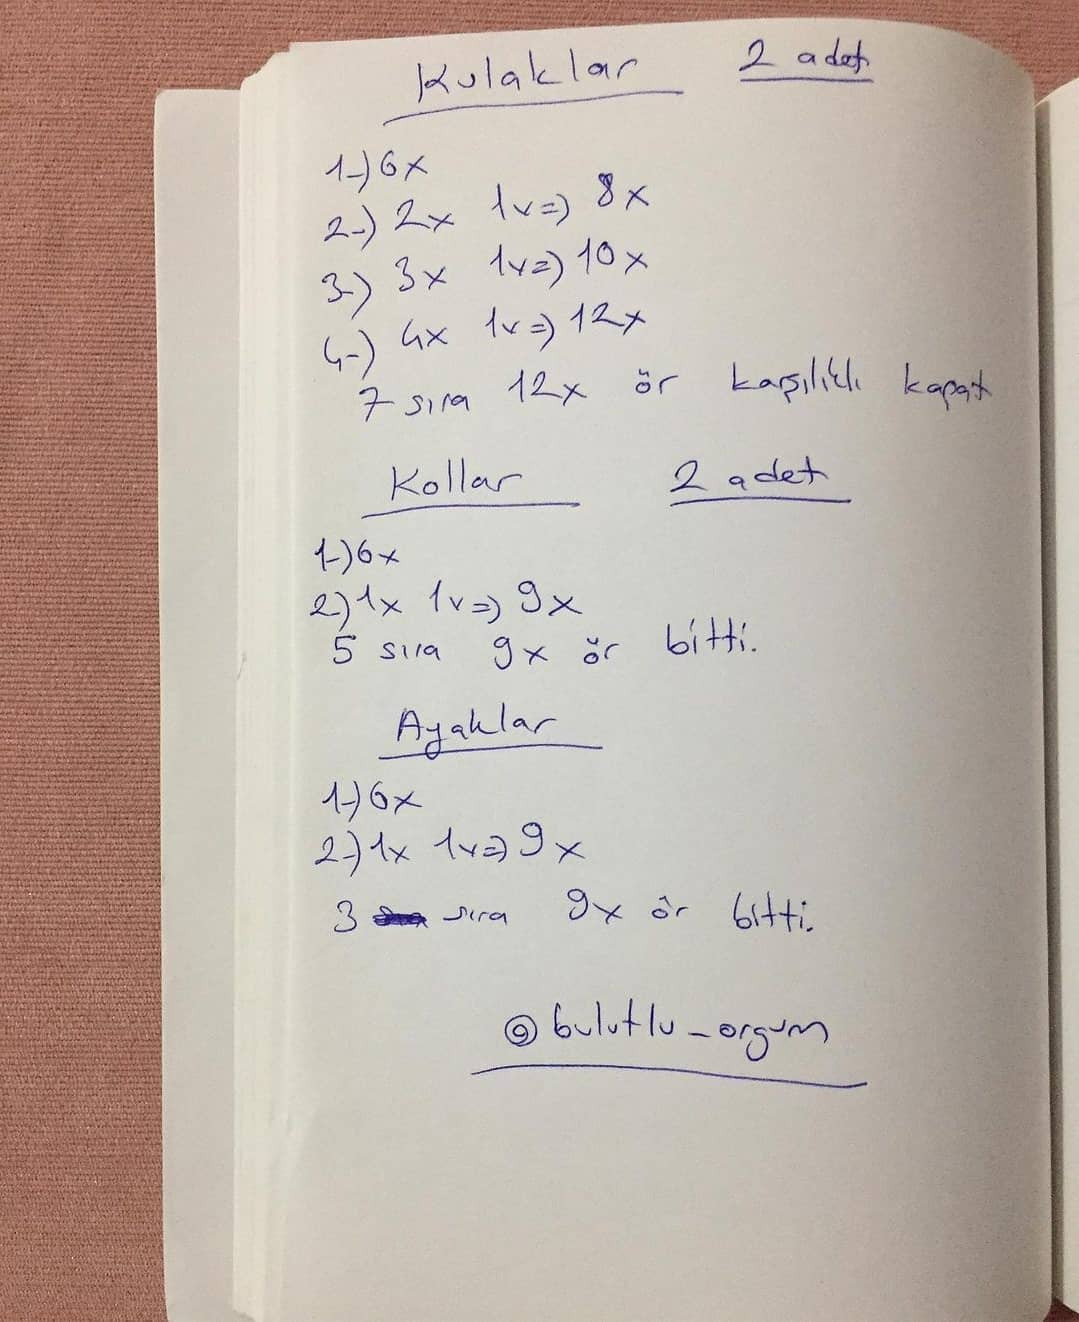 Kulaklar 2 adet
1-) 6x
2-) 2x 1v=) 8x
3-) 3x 1v=) 10x
4-) 4x 1v=) 12x
7 sıra 12x ör karşılıklı kapat
Kollar 2 adet
1-) 6x
2-) 1x 1v=) 9x
5 sıra 9x ör bitti.
Ayaklar
1-) 6x
2-) 1x 1v=) 9x
3 sıra 9x ör bitti.
@bulutlu_orgum